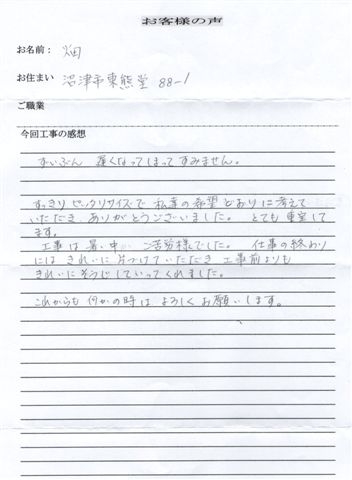 お客様の声
お名前： 畑
お住まい 沼津市東熊堂 88-1
ご職業
今回工事の感想
ずいぶん 遅くなってしまってすみません。
すっきりピッタリサイズで 私達の希望どおりに考えて
いただき ありがとうございました。 とても重宝して
ます。
工事は暑い中 ご苦労様でした。 仕事の終わり
には きれいに片づけていただき 工事前よりも
きれいにそうじしていってくれました。
これからも何かの時は よろしくお願いします。